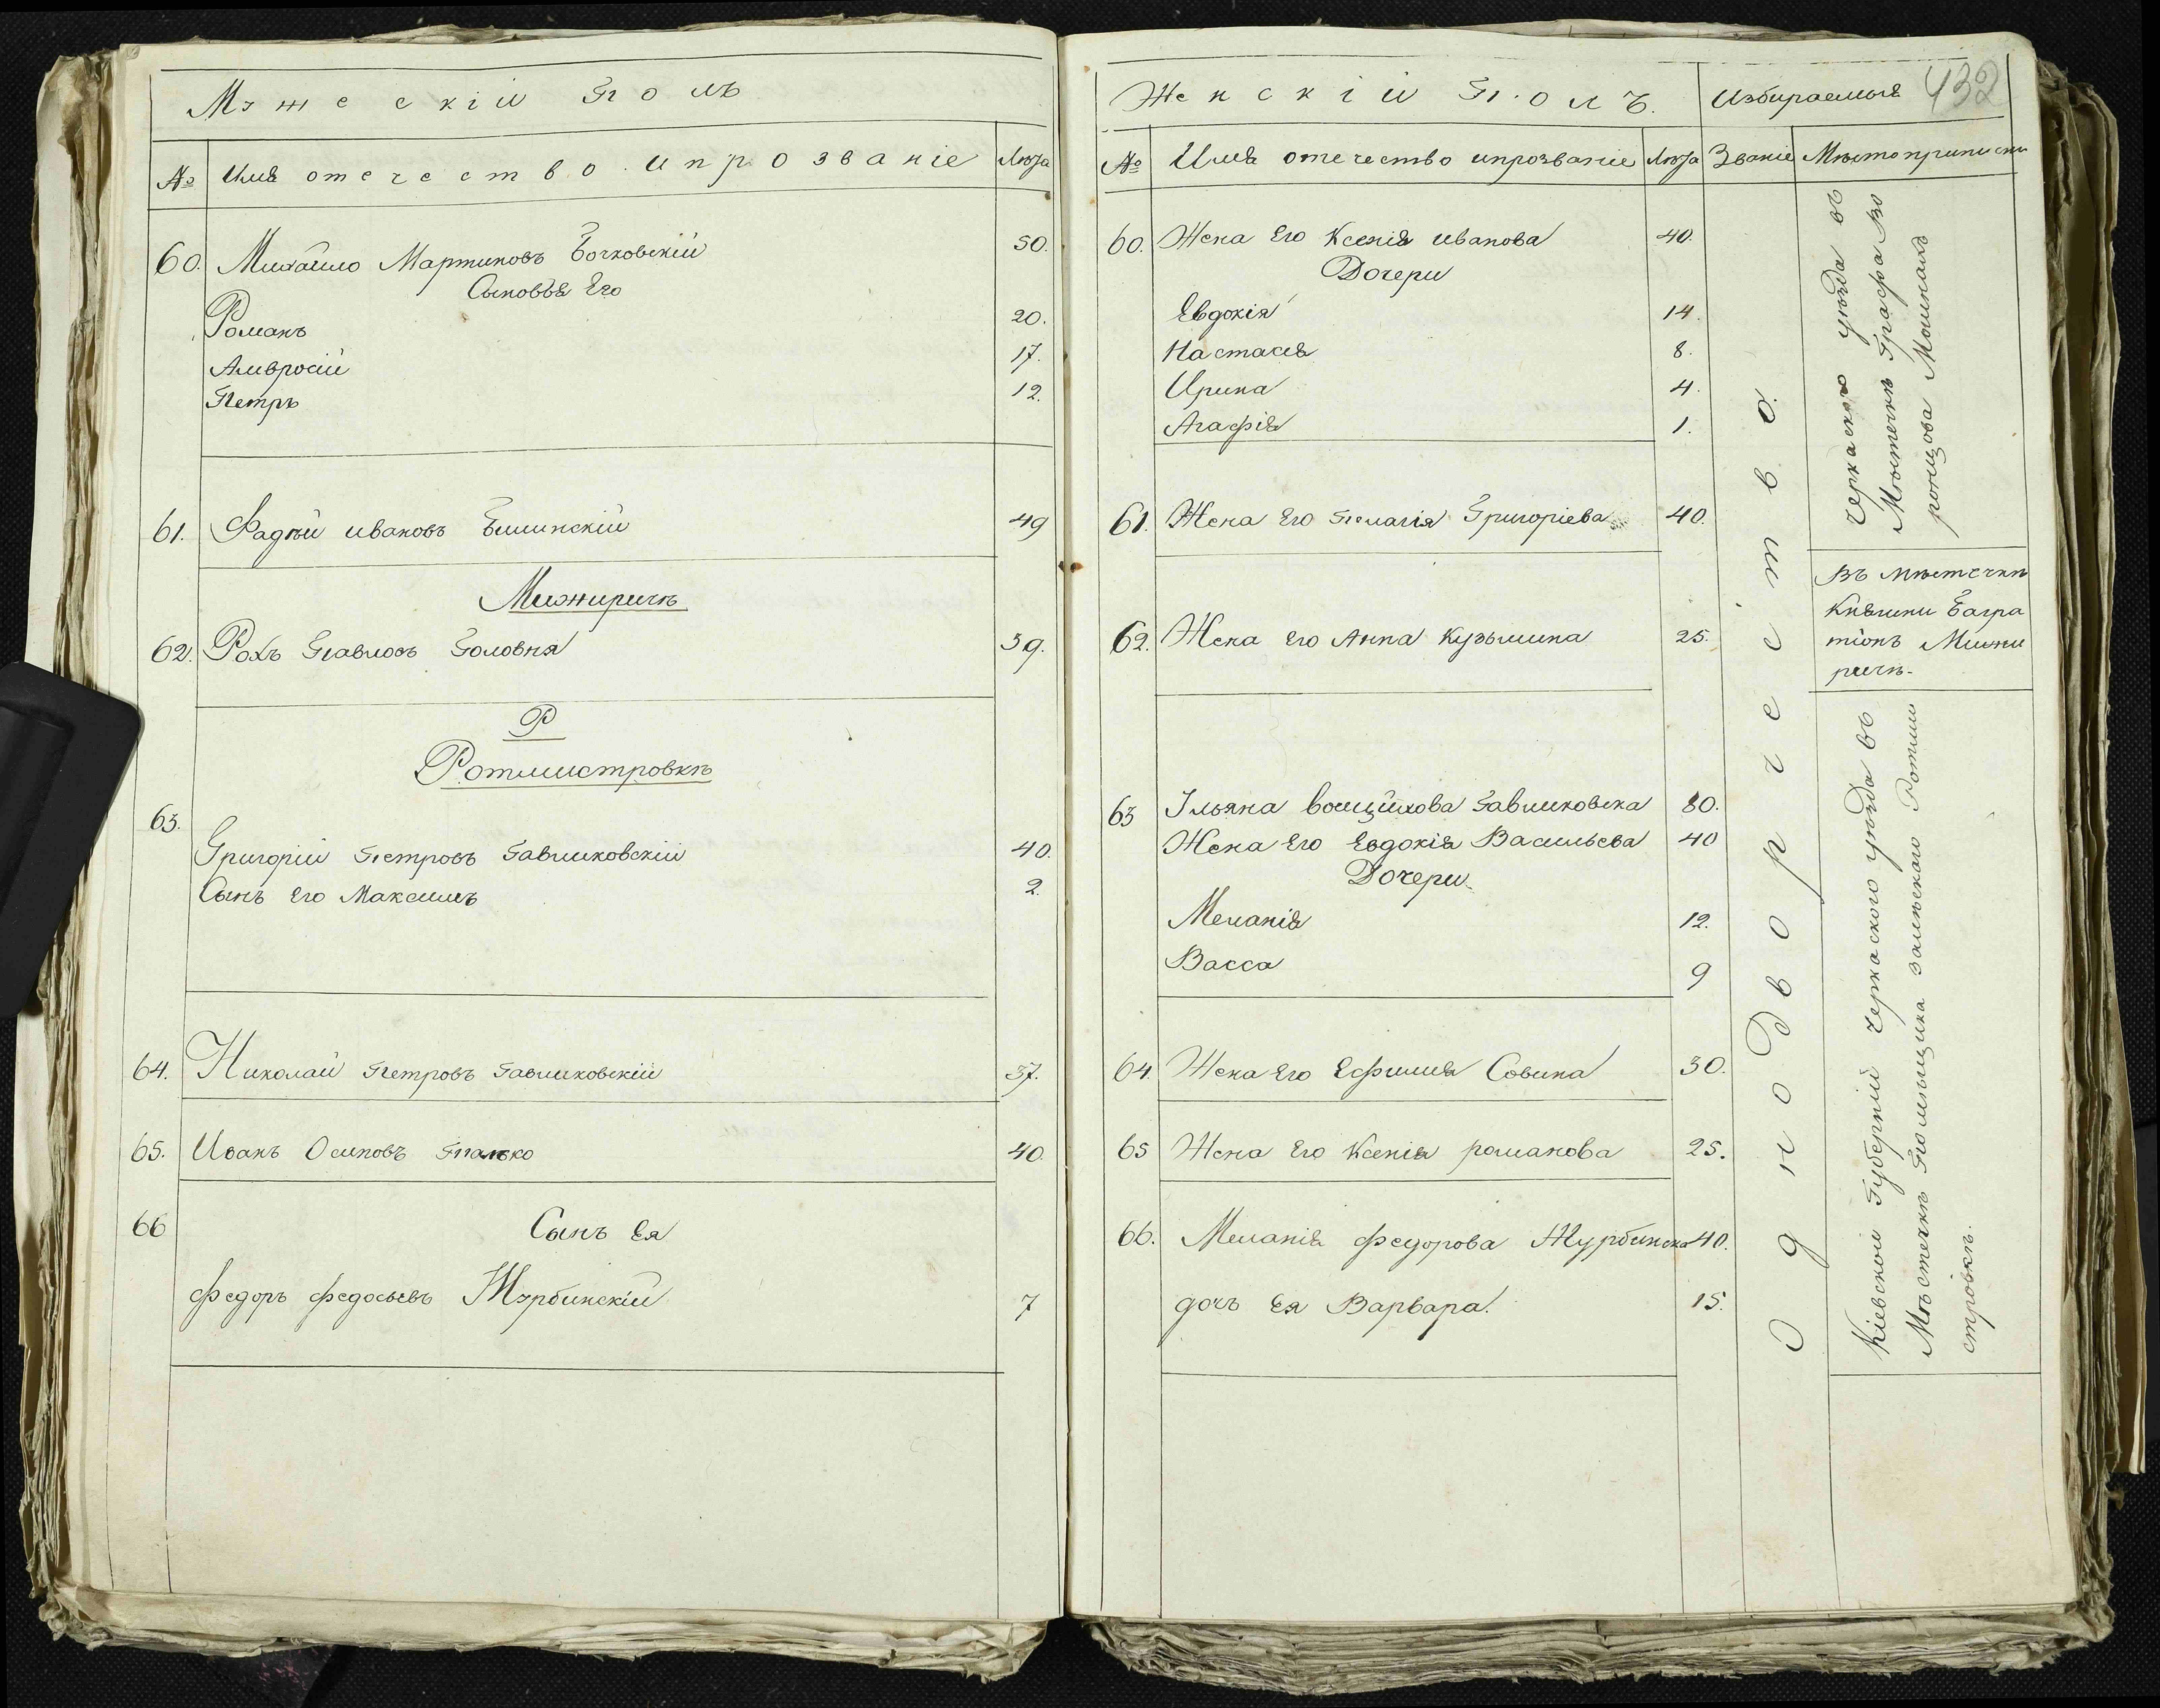 Мужескій Полъ
№ Имя отечество и прозваніе Лѣта
60. Михайло Мартиновъ Бочковскій 50.
Сыновья Его
Романъ 20.
Амвросій 17.
Петръ 12.
61. Фадѣй Ивановъ 49
Мижиричѣ
62. Рохъ Павловъ Головня 39.
Р
Ротмистровкѣ
63.
Григорій Петровъ Гавликовскій 40.
Сынъ Его Максимъ 2.
64. Николай Петровъ Гавликовскій 37.
65. Иванъ Осиповъ 40.
66 Сынъ Ея
Федоръ Федосьевъ Журбинскій 7
Женскій Полъ. Избираемыя 432
№ Имя отечество и прозваніе Лѣта Званіе Мѣсто приписки
60. Жена Его Ксенія Иванова 40.
Дочери
Евдокія 14.
Настасья 8.
Ирина 4.
Агафія 1.
61. Жена Его Пелагія Григоріева 40.
62. Жена Его Анна Кузьмина 25.
63 Ільяна Гавликовска 80.
Жена Его Евдокія Васильева 40
Дочери
Меланія 12.
Васса 9
64. Жена Его Ефимія Савина 30.
65 Жена Его Ксенія Романова 25.
66. Меланія Федорова Журбинска 40.
дочь Ея Варвара. 15.
Однодворчество.
Черкаского уѣзда въ
Мѣстечкѣ Графа Во
ронцова Мошнахъ
Въ мѣстечкѣ
Княгини Багра
тіонъ Мижи
ричѣ.
Кіевской Губерніи Черкаского уѣзда въ
Мѣстечкѣ Помѣщика Ротми
стровкѣ.